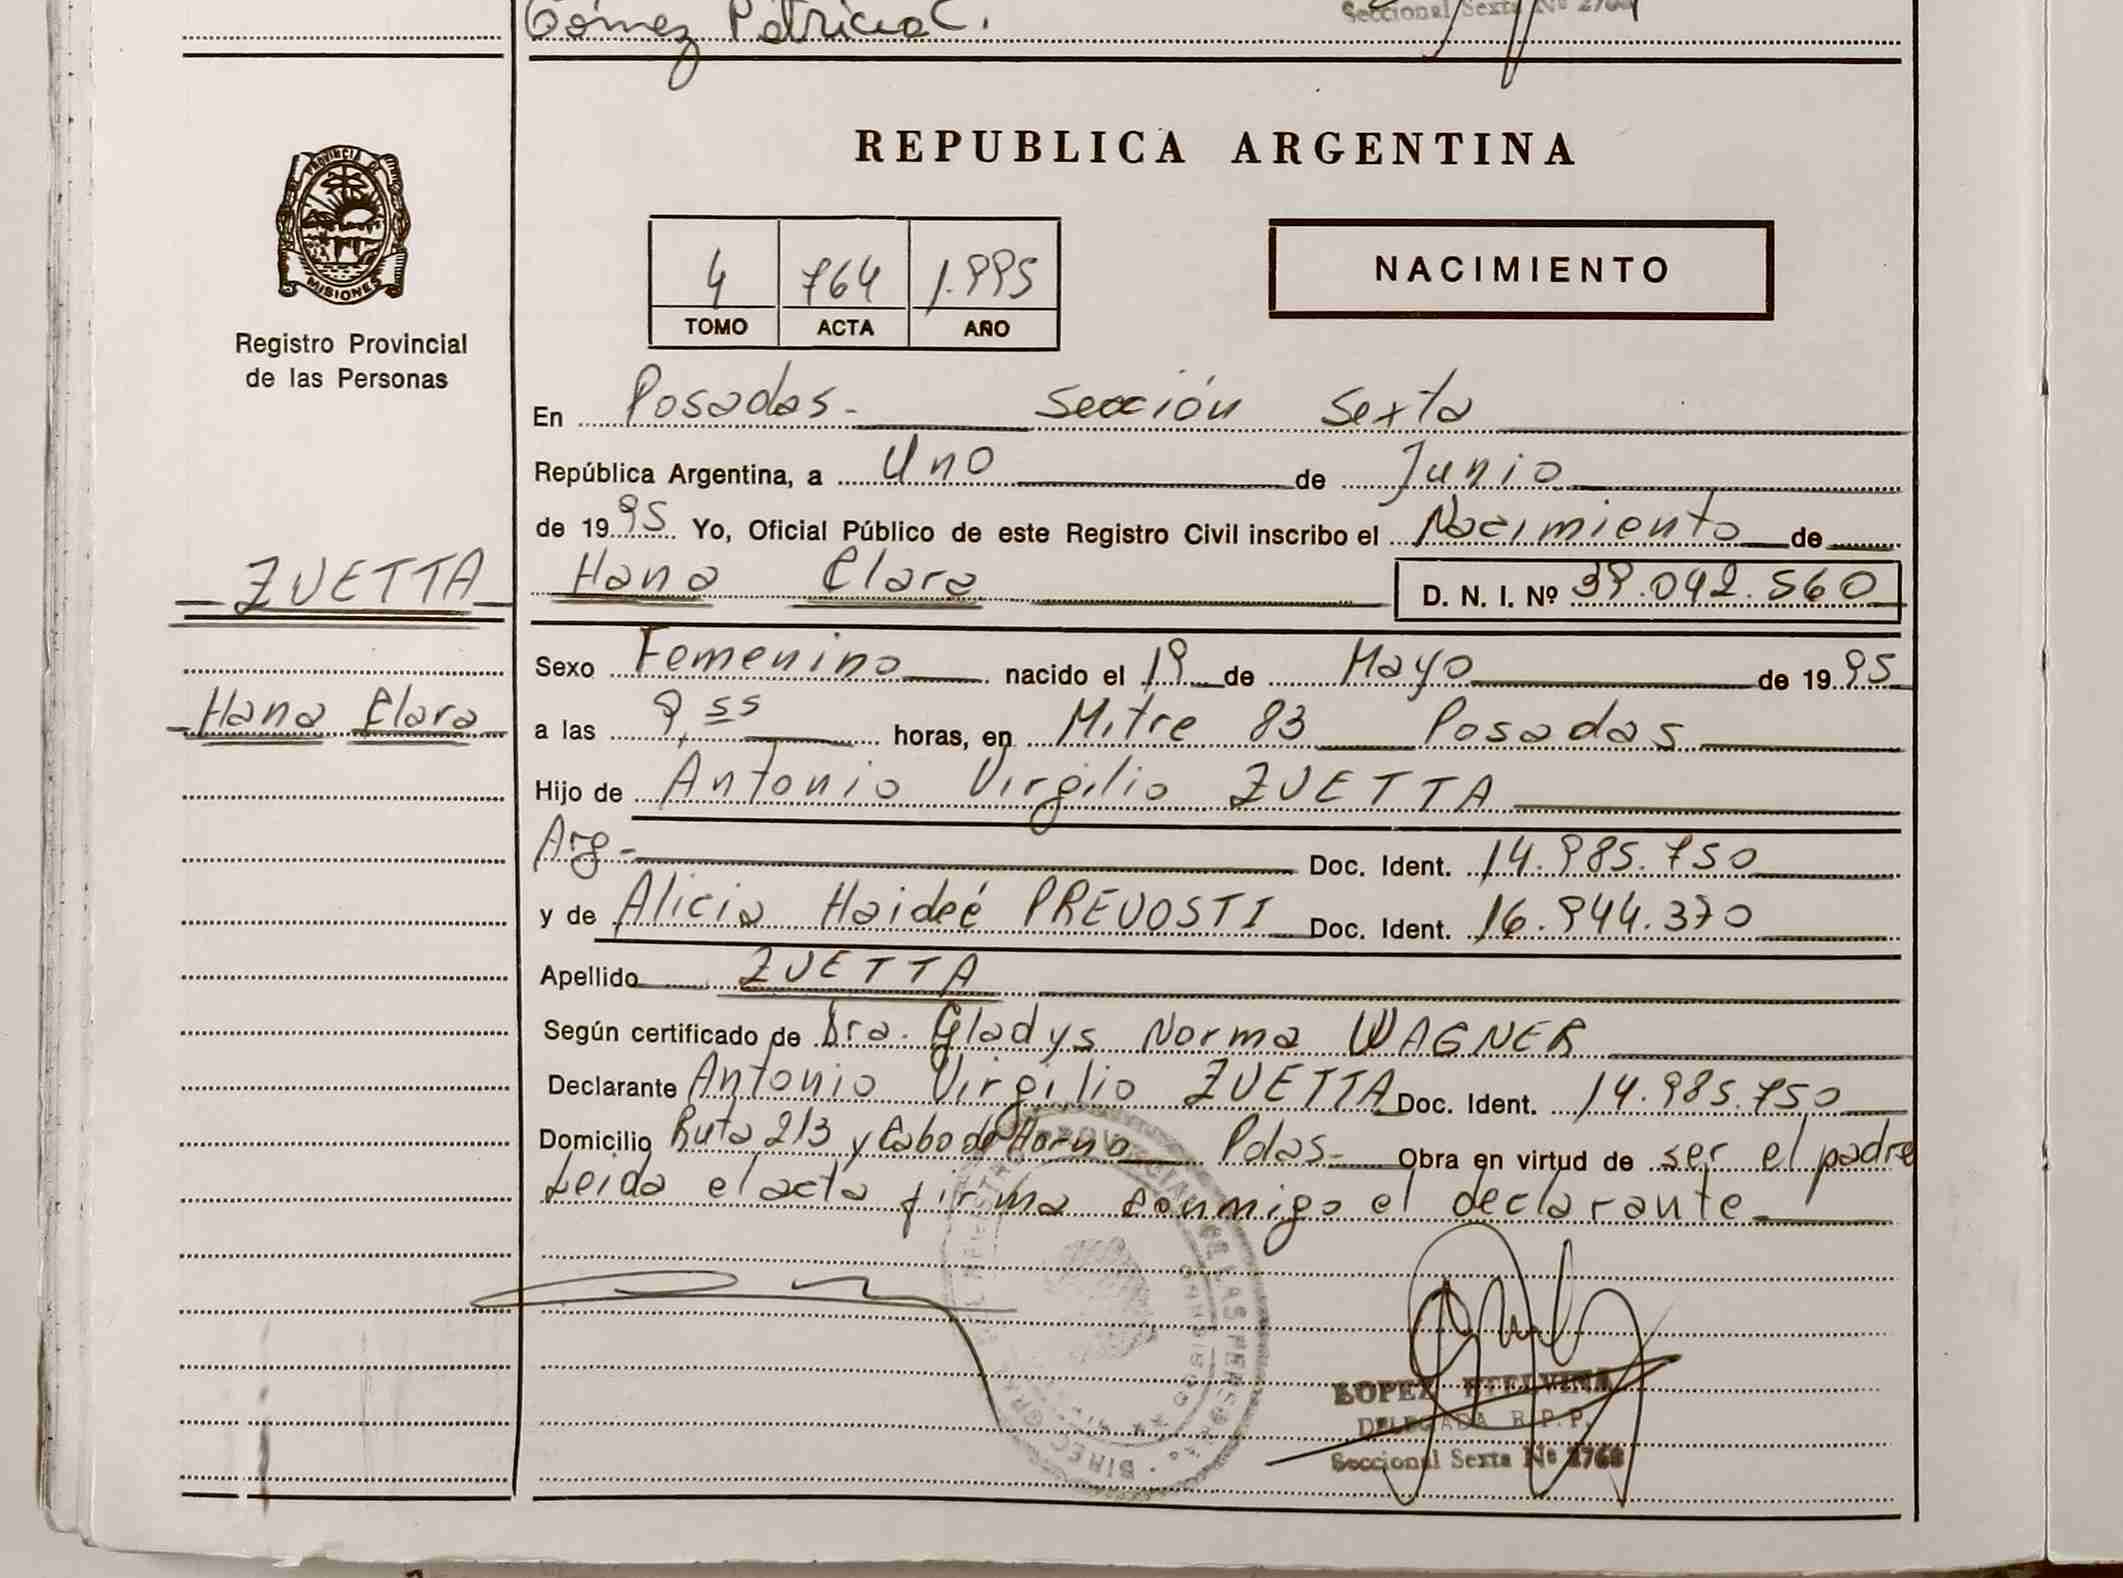 Gómez Patricia C.
Seccional Sexta Nº 2768
PROVINCIA DE
MISIONES
Registro Provincial
de las Personas
REPUBLICA ARGENTINA
4 764 1.995
TOMO ACTA AÑO
NACIMIENTO
En Posadas- Sección Sexta
República Argentina, a Uno de Junio
de 1995 Yo, Oficial Público de este Registro Civil inscribo el Nacimiento de
ZUETTA
Hana Clara D. N. I. Nº 39.042.560
Sexo Femenino nacido el 19 de Mayo de 1995
Hana Clara
a las 9,55 horas, en Mitre 83 Posadas
Hijo de Antonio Virgilio ZUETTA
Arg- Doc. Ident. 14.985.750
y de Alicia Haideé PREVOSTI Doc. Ident. 16.944.370
Apellido ZUETTA
Según certificado de Dra. Gladys Norma WAGNER
Declarante Antonio Virgilio ZUETTA Doc. Ident. 14.985.750
Domicilio Ruta 213 y Cabo de Horno Pdas- Obra en virtud de ser el padre
Leida el acta firma conmigo el declarante
LOPEZ ETELVINA
DELEGADA R.P.P.
Seccional Sexta Nº 2768